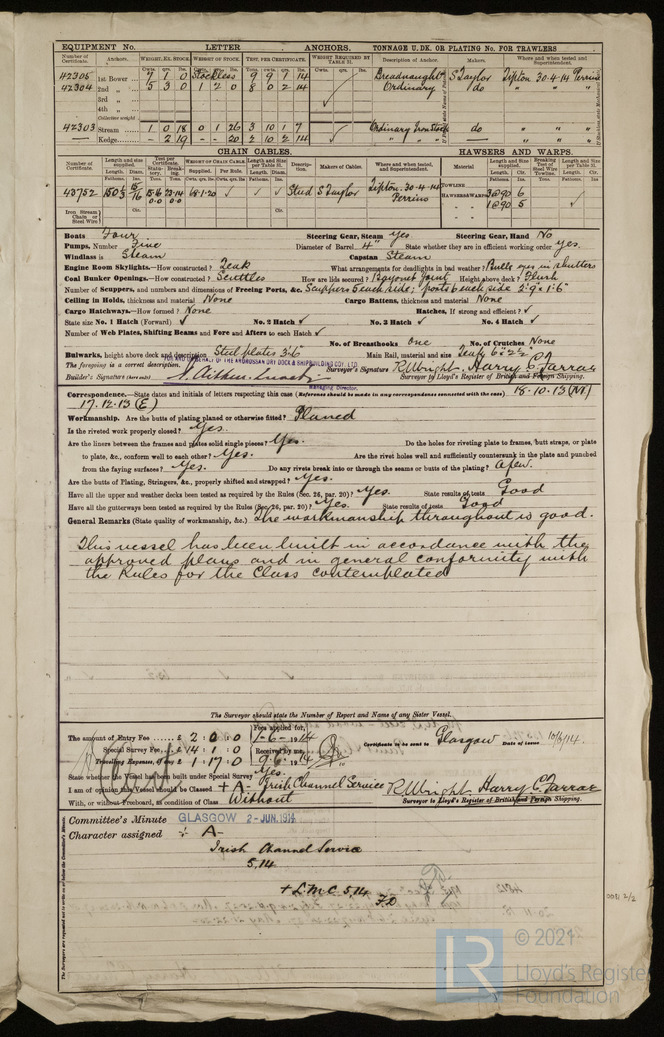 EQUIPMENT No. LETTER ANCHORS. TONNAGE U. DK. OR PLATING No. FOR TRAWLERS
Number of Certificate. Anchors. WEIGHT, EX. STOCK WEIGHT OF STOCK. TEST, PER CERTIFICATE. WEIGHT REQUIRED BY TABLE 31. Description of Anchor. Makers. Where and when tested and Superintendent.
42305 1st Bower 7 1 0 Stockless 9 9 1 14 Dreadnaught S Taylor Tipton 30·4·14 Perrins
42304 2nd „ 5 3 0 1 2 0 8 0 2 14 Ordinary do " " "
3rd „
4th „
Collective weight
42303 Stream 1 0 18 0 1 26 3 10 1 7 Ordinary Iron Stock do " " "
Kedge - 2 19 - - 20 2 10 2 14 " " " " " "
CHAIN CABLES. HAWSERS AND WARPS.
Number of Certificate. Length and size supplied. Test per Certificate. WEIGHT OF CHAIN CABLE. Length and Size per Table 31. Description. Makers of Cables. Where and when tested, and Superintendent. Material Length and Size supplied. Breaking Test of Steel Wire Towlines. Length and Size per Table 31.
43752 150 Stud S Taylor Tipton 30·4·14 Perrins TOWLINE HAWSERS & WARPS 3@90 6
1@90 5
Iron Stream Chain or Steel Wire
Boats Four Steering Gear, Steam yes Steering Gear, Hand No
Pumps, Number Five Diameter of Barrel 4" State whether they are in efficient working order yes.
Windlass is Steam Capstan Steam
Engine Room Skylights.—How constructed? Teak What arrangements for deadlights in bad weather? Bulls eyes in shutters
Coal Bunker Openings.—How constructed? Scuttles How are lids secured? Bayonet joint Height above deck? Flush
Number of Scuppers, and numbers and dimensions of Freeing Ports, &c. Scuppers 5 each side; ports 6 each side 2'·9" x 1'·6"
Ceiling in Holds, thickness and material None Cargo Battens, thickness and material None
Cargo Hatchways.—How formed? None Hatches, If strong and efficient? ✓
State size No. 1 Hatch (Forward) ✓ No. 2 Hatch ✓ No. 3 Hatch ✓ No. 4 Hatch ✓
Number of Web Plates, Shifting Beams and Fore and Afters to each Hatch ✓
No. of Breasthooks one No. of Crutches None
Bulwarks, height above deck and description Steel plates 3'·6" Main Rail, material and size Teak 6 x 2½
FOR AND ON BEHALF OF THE ARDROSSAN DRY DOCK & SHIPBUILDING COY., LTD.
The foregoing is a correct description.
Builder's Signature (here only) Managing Director. Surveyor's Signature R Wright. Harry C. Farrar
Surveyor to Lloyd's Register of British and Foreign Shipping.
Correspondence.—State dates and initials of letters respecting this case (Reference should be made in any correspondence connected with the case) 18·10·13 (M)
17·12·13 (E)
Workmanship. Are the butts of plating planed or otherwise fitted? Planed
Is the riveted work properly closed? Yes.
Are the liners between the frames and plates solid single pieces? Yes. Do the holes for riveting plate to frames, butt straps, or plate
to plate, &c., conform well to each other? Yes. Are the rivet holes well and sufficiently countersunk in the plate and punched
from the faying surfaces? Yes. Do any rivets break into or through the seams or butts of the plating? A few.
Are the butts of Plating, Stringers, &c., properly shifted and strapped? Yes.
Have all the upper and weather decks been tested as required by the Rules (Sec. 26, par. 20)? Yes. State results of tests Good
Have all the gutterways been tested as required by the Rules (Sec. 26, par. 20)? Yes State results of tests Good
General Remarks (State quality of workmanship, &c.) The workmanship throughout is good.
This vessel has been built in accordance with the
approved plans and in general conformity with
the Rules for the Class contemplated
The Surveyor should state the Number of Report and Name of any Sister Vessel.
The amount of Entry Fee £ 2 : 0 : 0 Fees applied for, 1-6-1914
Special Survey Fee £ 14 : 1 : 0 Received by me, Certificate to be sent to Glasgow Date of issue 10/6/14.
Travelling Expenses, if any £ 1 : 17 : 0 9·6·1914
State whether the Vessel has been built under Special Survey Yes.
I am of opinion this Vessel should be Classed + A - Irish Channel Service R Wright Harry C. Farrar
With, or without Freeboard, as condition of Class Without Surveyor to Lloyd's Register of British and Foreign Shipping.
Committee's Minute GLASGOW 2-JUN.1914
Character assigned + A -
Irish Channel Service
5,14
+ L.M.C. 5,14
F.D.
The Surveyors are requested not to write on or below the Committee's Minute.
LR © 2021
Lloyd's Register
Foundation